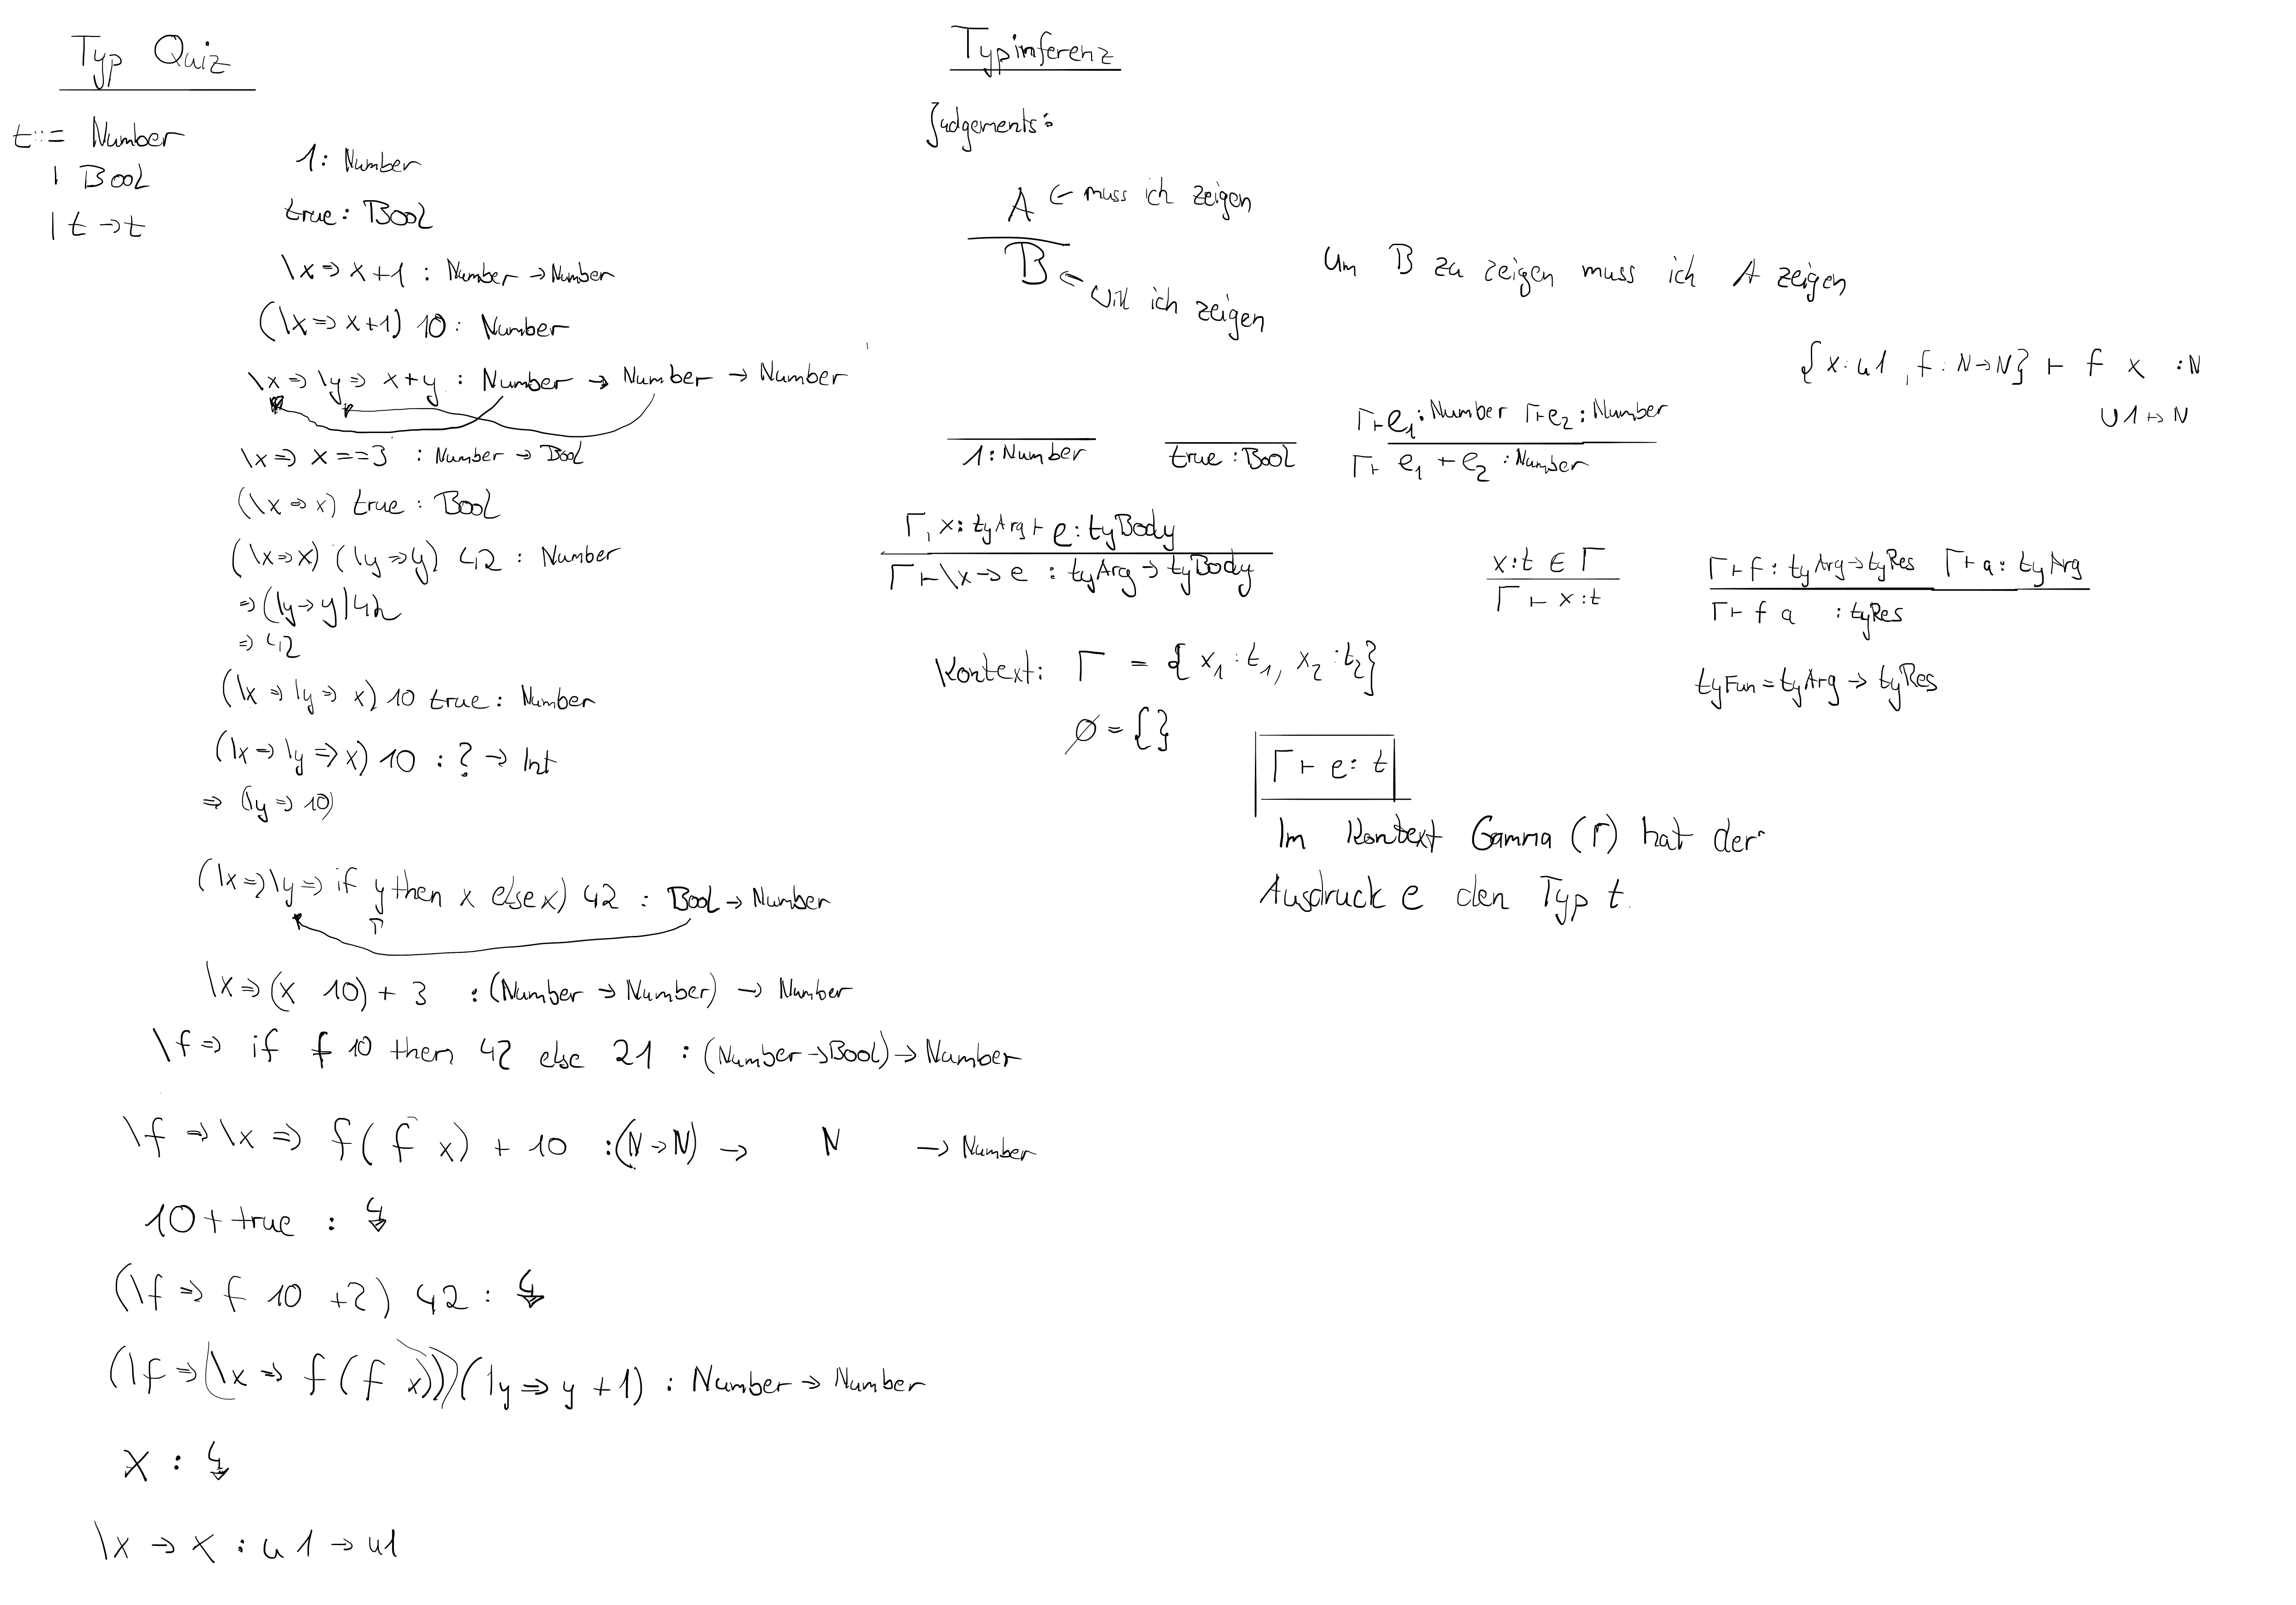 Typ Quiz
t::= Number
| Bool
| t → t
1: Number
true: Bool
\x ⇒ x+1 : Number → Number
(\x ⇒ x+1) 10: Number
\x ⇒ \y ⇒ x+y : Number → Number → Number
\x ⇒ x==3 : Number → Bool
(\x ⇒ x) true : Bool
(\x ⇒ x) (\y ⇒ y) 42 : Number
⇒ (\y → y) 42
⇒ 42
(\x ⇒ \y ⇒ x) 10 true : Number
(\x ⇒ \y ⇒ x) 10 : ? → Int
⇒ (\y ⇒ 10)
(\x ⇒ \y ⇒ if y then x else x) 42 : Bool → Number
\x ⇒ (x 10) + 3 : (Number → Number) → Number
\f ⇒ if f 10 then 42 else 21 : (Number → Bool) → Number
\f ⇒ \x ⇒ f (f x) + 10 : (N → N) → N → Number
10 + true : ↯
(\f ⇒ f 10 +2) 42 : ↯
(\f ⇒ (\x ⇒ f (f x))) (\y ⇒ y +1) : Number → Number
x : ↯
\x → x : u1 → u1
Typinferenz
Judgements:
A ← muss ich zeigen
B ← will ich zeigen
Um B zu zeigen muss ich A zeigen
{x: u1, f: N→N} ⊢ f x : N
u1 ↦ N
1: Number
true : Bool
Γ ⊢ e₁ : Number Γ ⊢ e₂ : Number
Γ ⊢ e₁ + e₂ : Number
Γ, x: tyArg ⊢ e : tyBody
Γ ⊢ \x → e : tyArg → tyBody
x:t ∈ Γ
Γ ⊢ x:t
Γ ⊢ f : tyArg → tyRes Γ ⊢ a : tyArg
Γ ⊢ f a : tyRes
tyFun = tyArg → tyRes
Kontext: Γ = { x₁ : t₁, x₂ : t₂ }
∅ = {}
Γ ⊢ e : t
Im Kontext Gamma (Γ) hat der
Ausdruck e den Typ t.